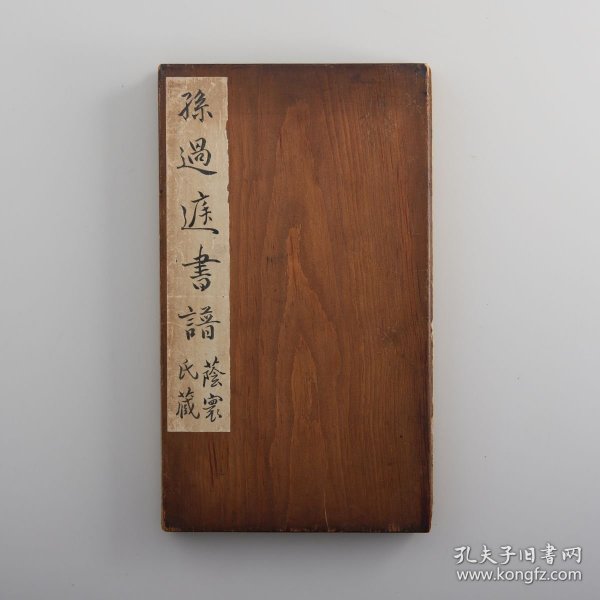 孫過庭書譜
蔭寰
氏藏
孔夫子旧書网
www.kongfz.com